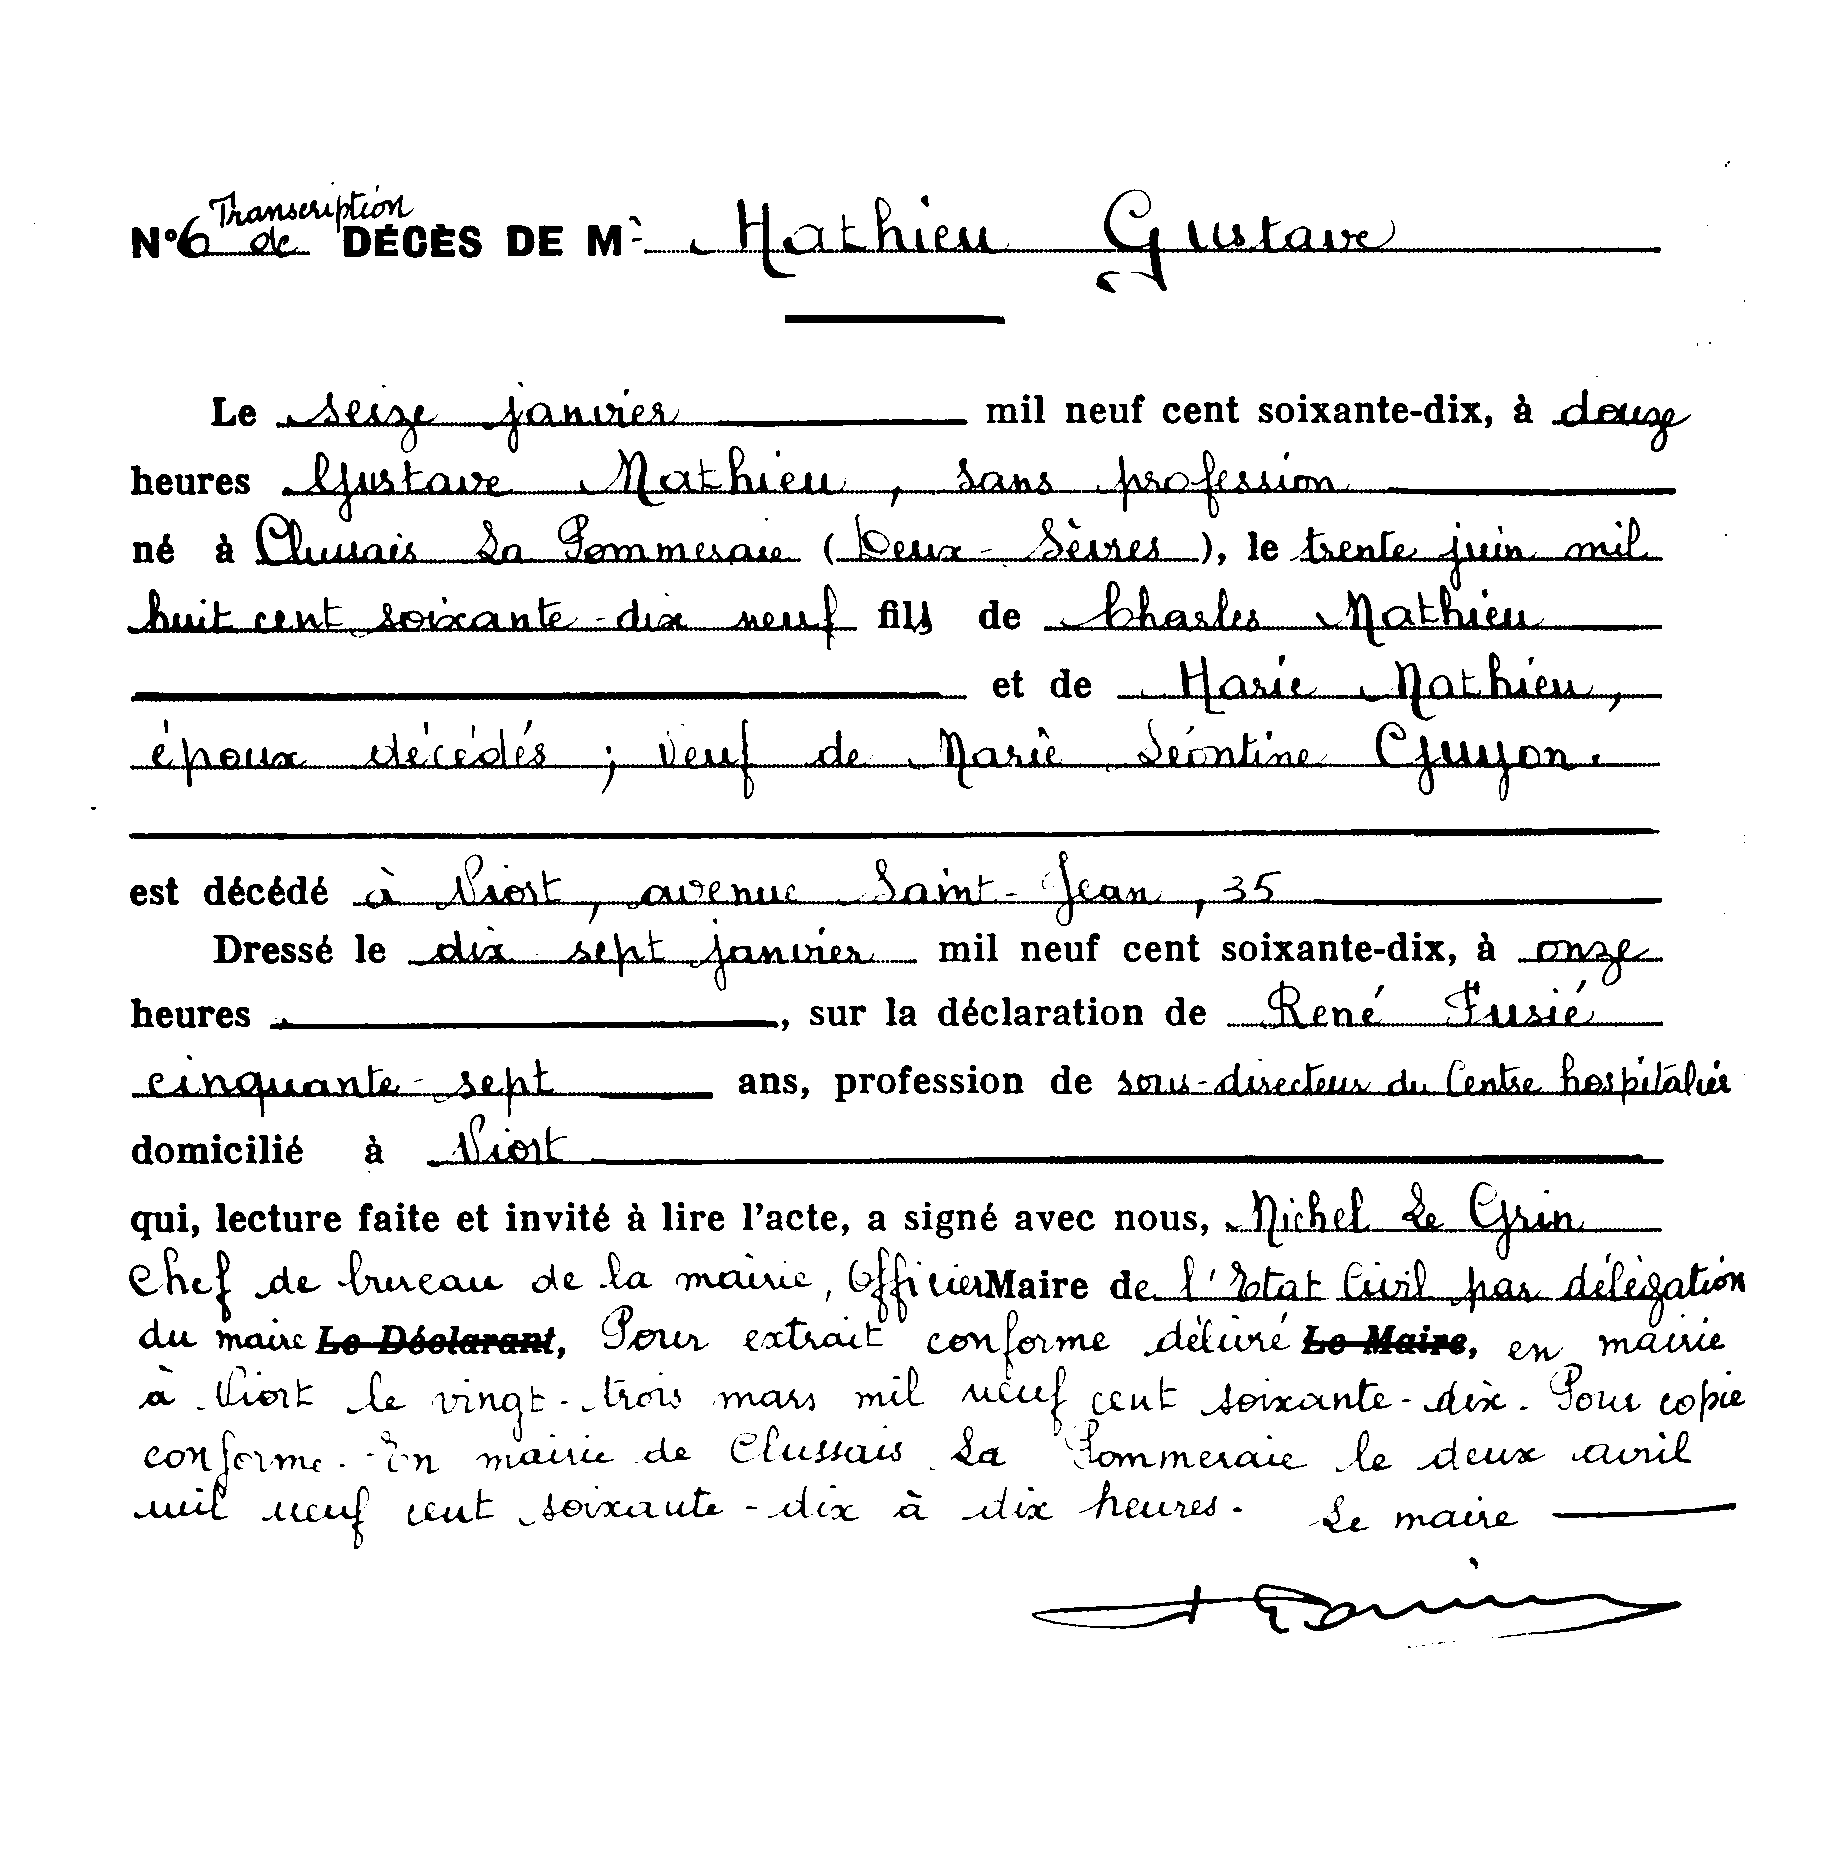 N° 6 Transcription de DÉCÈS DE Mr Mathieu Gustave
Le seize janvier mil neuf cent soixante-dix, à douze
heures Gustave Mathieu, sans profession
né à Clussais La Pommeraie (Deux-Sèvres), le trente juin mil
huit cent soixante-dix neuf fils de Charles Mathieu
et de Marie Mathieu,
époux décédés ; veuf de Marie Léontine Guyon.
est décédé à Niort, avenue Saint-Jean, 35
Dressé le dix sept janvier mil neuf cent soixante-dix, à onze
heures , sur la déclaration de René Fusié
cinquante-sept ans, profession de sous-directeur du Centre hospitalier
domicilié à Niort
qui, lecture faite et invité à lire l'acte, a signé avec nous, Michel Le Grin
Chef de bureau de la mairie, Officier Maire de l'Etat Civil par délégation
du maire Le Déclarant, Pour extrait conforme délivré Le Maire, en mairie
à Niort le vingt-trois mars mil neuf cent soixante-dix. Pour copie
conforme. En mairie de Clussais La Pommeraie le deux avril
mil neuf cent soixante-dix à dix heures. Le maire